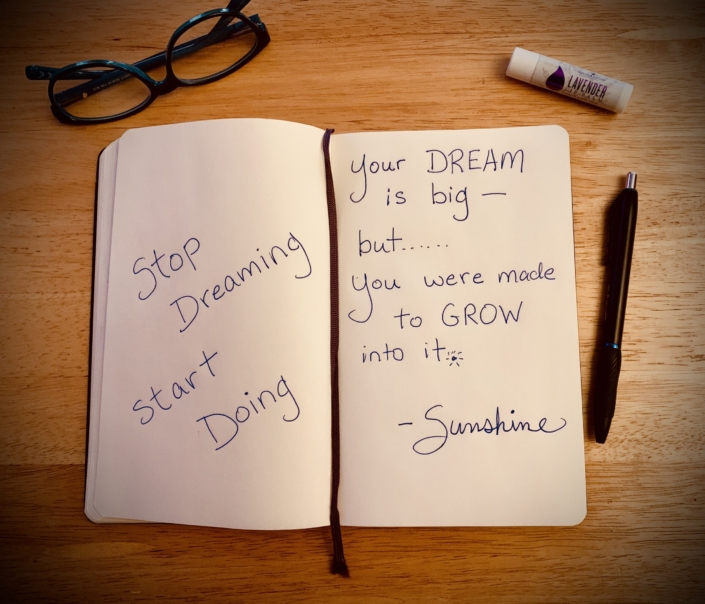 LAVENDER
Stop
Dreaming
start
Doing
your DREAM
is big —
but......
you were made
to GROW
into it.
-Sunshine